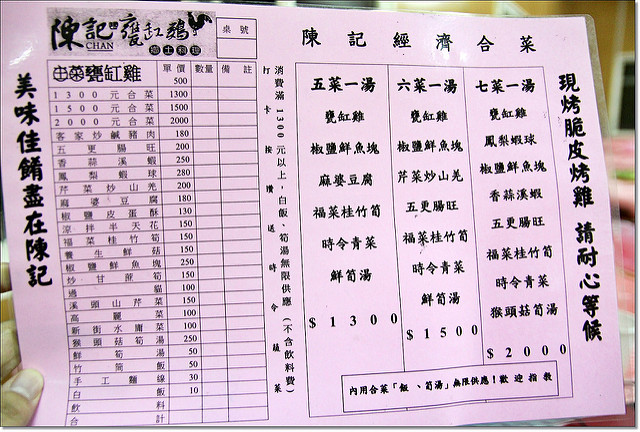 陳記甕缸鷄
CHAN
鄉土料理
桌號
主菜甕缸雞 單價 數量 備註
500
1300元合菜 1300
1500元合菜 1500
2000元合菜 2000
客家炒鹹豬肉 180
五更腸旺 200
香蒜溪蝦 250
鳳梨蝦球 280
芹菜炒山羌 200
麻婆豆腐 180
椒鹽皮蛋酥 130
涼拌半天花 150
福菜桂竹筍 150
養生鮮菇 150
椒鹽鮮魚塊 250
炒甘蔗筍 150
過貓 100
溪頭山芹菜 150
高麗菜 100
新街水庸菜 100
猴頭菇筍湯 250
鮮筍湯 50
竹筒飯 50
手工麵線 30
白飯 10
飲料
合計
美味佳餚盡在陳記
消費滿1300元以上,白飯、筍湯無限供應(不含飲料費)
打卡按讚送時令蔬菜
陳記經濟合菜
五菜一湯
甕缸雞
椒鹽鮮魚塊
麻婆豆腐
福菜桂竹筍
時令青菜
鮮筍湯
$1300
六菜一湯
甕缸雞
椒鹽鮮魚塊
芹菜炒山羌
五更腸旺
福菜桂竹筍
時令青菜
鮮筍湯
$1500
七菜一湯
甕缸雞
鳳梨蝦球
椒鹽鮮魚塊
香蒜溪蝦
五更腸旺
福菜桂竹筍
時令青菜
猴頭菇筍湯
$2000
內用合菜「飯、筍湯」無限供應!歡迎指教
現烤脆皮烤雞 請耐心等候